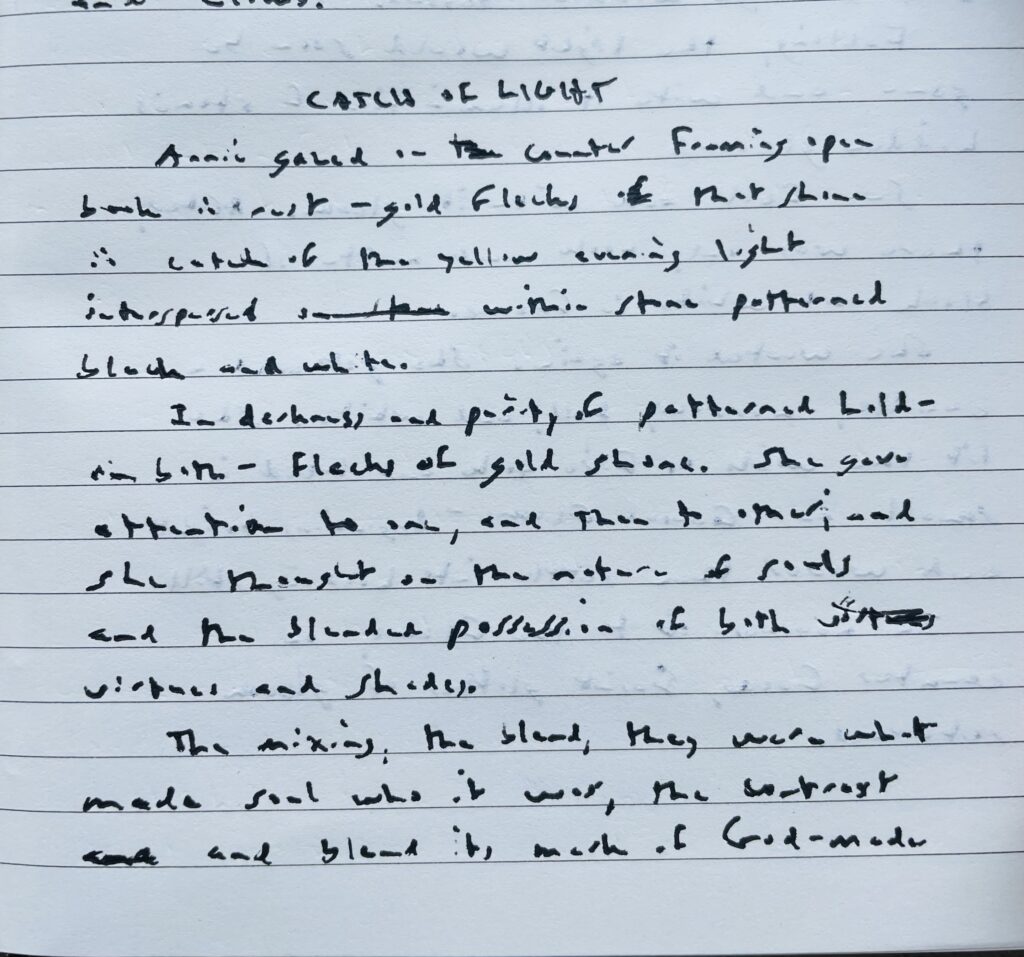 and
CATCH OF LIGHT
Annie gazed on counter framing open
book in rest - gold flecks that shone
in catch of the yellow evening light
interspersed within stone patterned
black and white.
In darkness and purity of patterned hold -
in both - flecks of gold shone. She gave
attention to one, and then to other, and
she thought on the nature of souls
and the blended possession of both
virtues and shades.
The mixing, the blend, they were what
made soul who it was, the contrast
and blend its mark of God-made